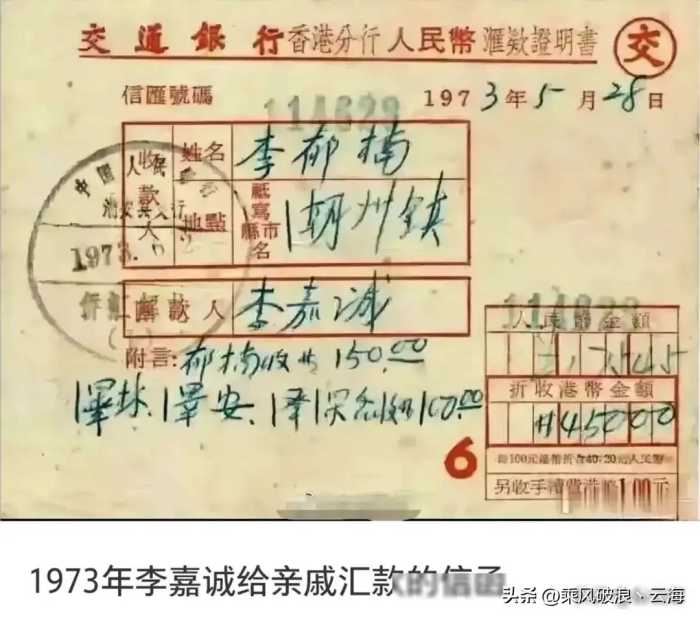 交通銀行香港分行人民幣滙款證明書 交
信匯號碼 114629 1973年5月28日
收款人 姓名 李郁楠
地點 祗寫縣市名 潮州鎮
中国人民
1973.
匯款人 李嘉诚
114629
人民幣金額
附言:郁楠收廿150.00
45
折收港幣金額
澤林、澤安、澤深各收100.00
45000
6
每100元港幣折合40.20元人民幣
另收手續費港幣1.00元
1973年李嘉诚给亲戚汇款的信函
头条@乘风破浪、云海